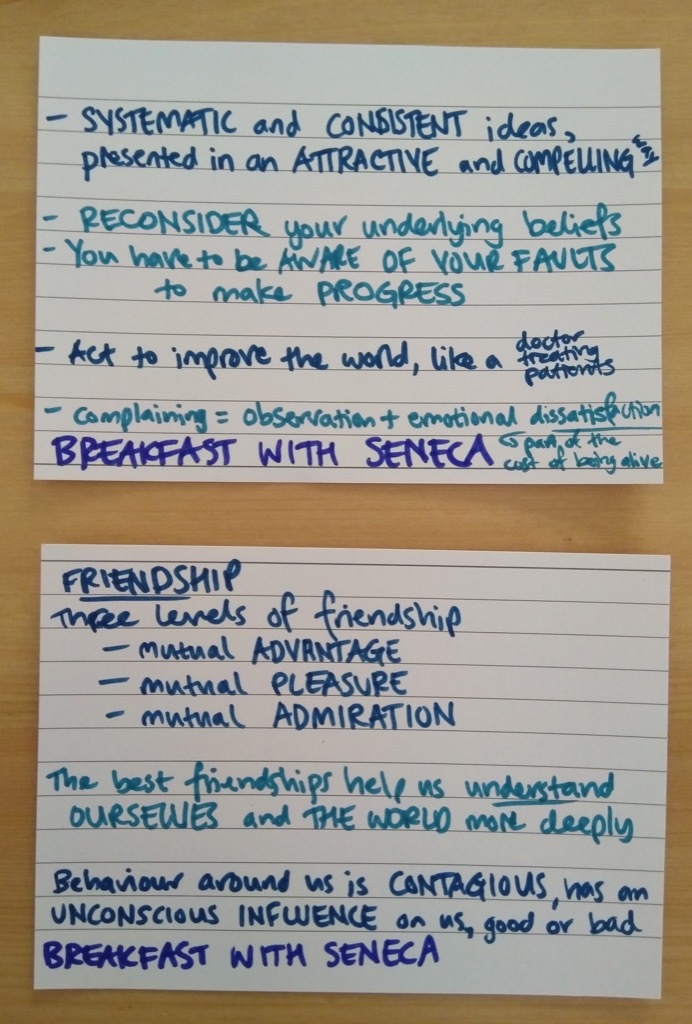 - SYSTEMATIC and CONSISTENT ideas,
presented in an ATTRACTIVE and COMPELLING way
- RECONSIDER your underlying beliefs
- You have to be AWARE OF YOUR FAULTS
to make PROGRESS
- Act to improve the world, like a doctor
treating
patients
- complaining = observation + emotional dissatisfaction
part of the
cost of being alive
BREAKFAST WITH SENECA
FRIENDSHIP
Three levels of friendship
- mutual ADVANTAGE
- mutual PLEASURE
- mutual ADMIRATION
The best friendships help us understand
OURSELVES and THE WORLD more deeply
Behaviour around us is CONTAGIOUS, has an
UNCONSCIOUS INFLUENCE on us, good or bad
BREAKFAST WITH SENECA